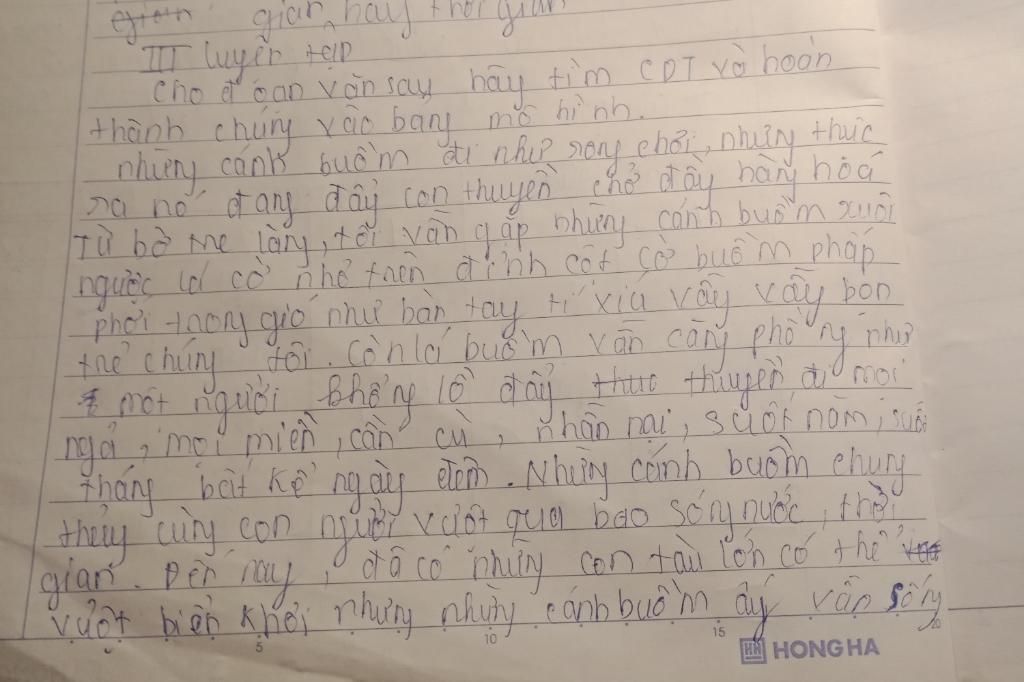 gian, hay thời gian
III Luyện tập
Cho đoạn văn sau hãy tìm CDT và hoàn
thành chúng vào bảng mô hình.
những cánh buồm đi như rong chơi, nhưng thực
ra nó đang đẩy con thuyền chở đầy hàng hóa
Từ bờ tre làng, tôi vẫn gặp những cánh buồm xuôi
ngược lá cờ nhỏ trên đỉnh cột cờ buồm phấp
phới trong gió như bàn tay tí xíu vẫy vẫy bọn
trẻ chúng tôi. Còn lá buồm vẫn căng phồng như
một người khổng lồ đẩy thuyền đi mọi
ngả, mọi miền, cần cù, nhẫn nại, suốt năm, suốt
tháng bất kể ngày đêm. Những cánh buồm chung
thủy cùng con người vượt qua bao sóng nước, thời
gian. Đến nay, đã có những con tàu lớn có thể
vượt biển khơi nhưng những cánh buồm ấy vẫn sống
5 10 15 20
HH HONG HA